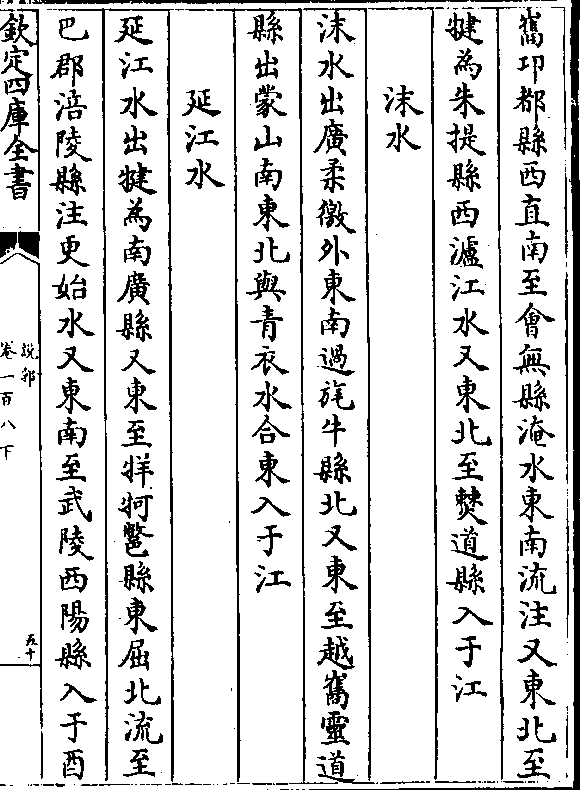 巂卭都縣西直南至會無縣淹水東南流注又東北至
犍為朱提縣西瀘江水又東北至僰道縣入于江
沬水
沬水出廣柔徼外東南過旄牛縣北又東至越巂靈道
縣出蒙山南東北與青衣水合東入于江
延江水
延江水出犍為南廣縣又東至牂牁鄨縣東屈北流至
巴郡涪陵縣注更始水又東南至武陵酉陽縣入于酉
欽定四庫全書
說郛
卷一百八下
五十